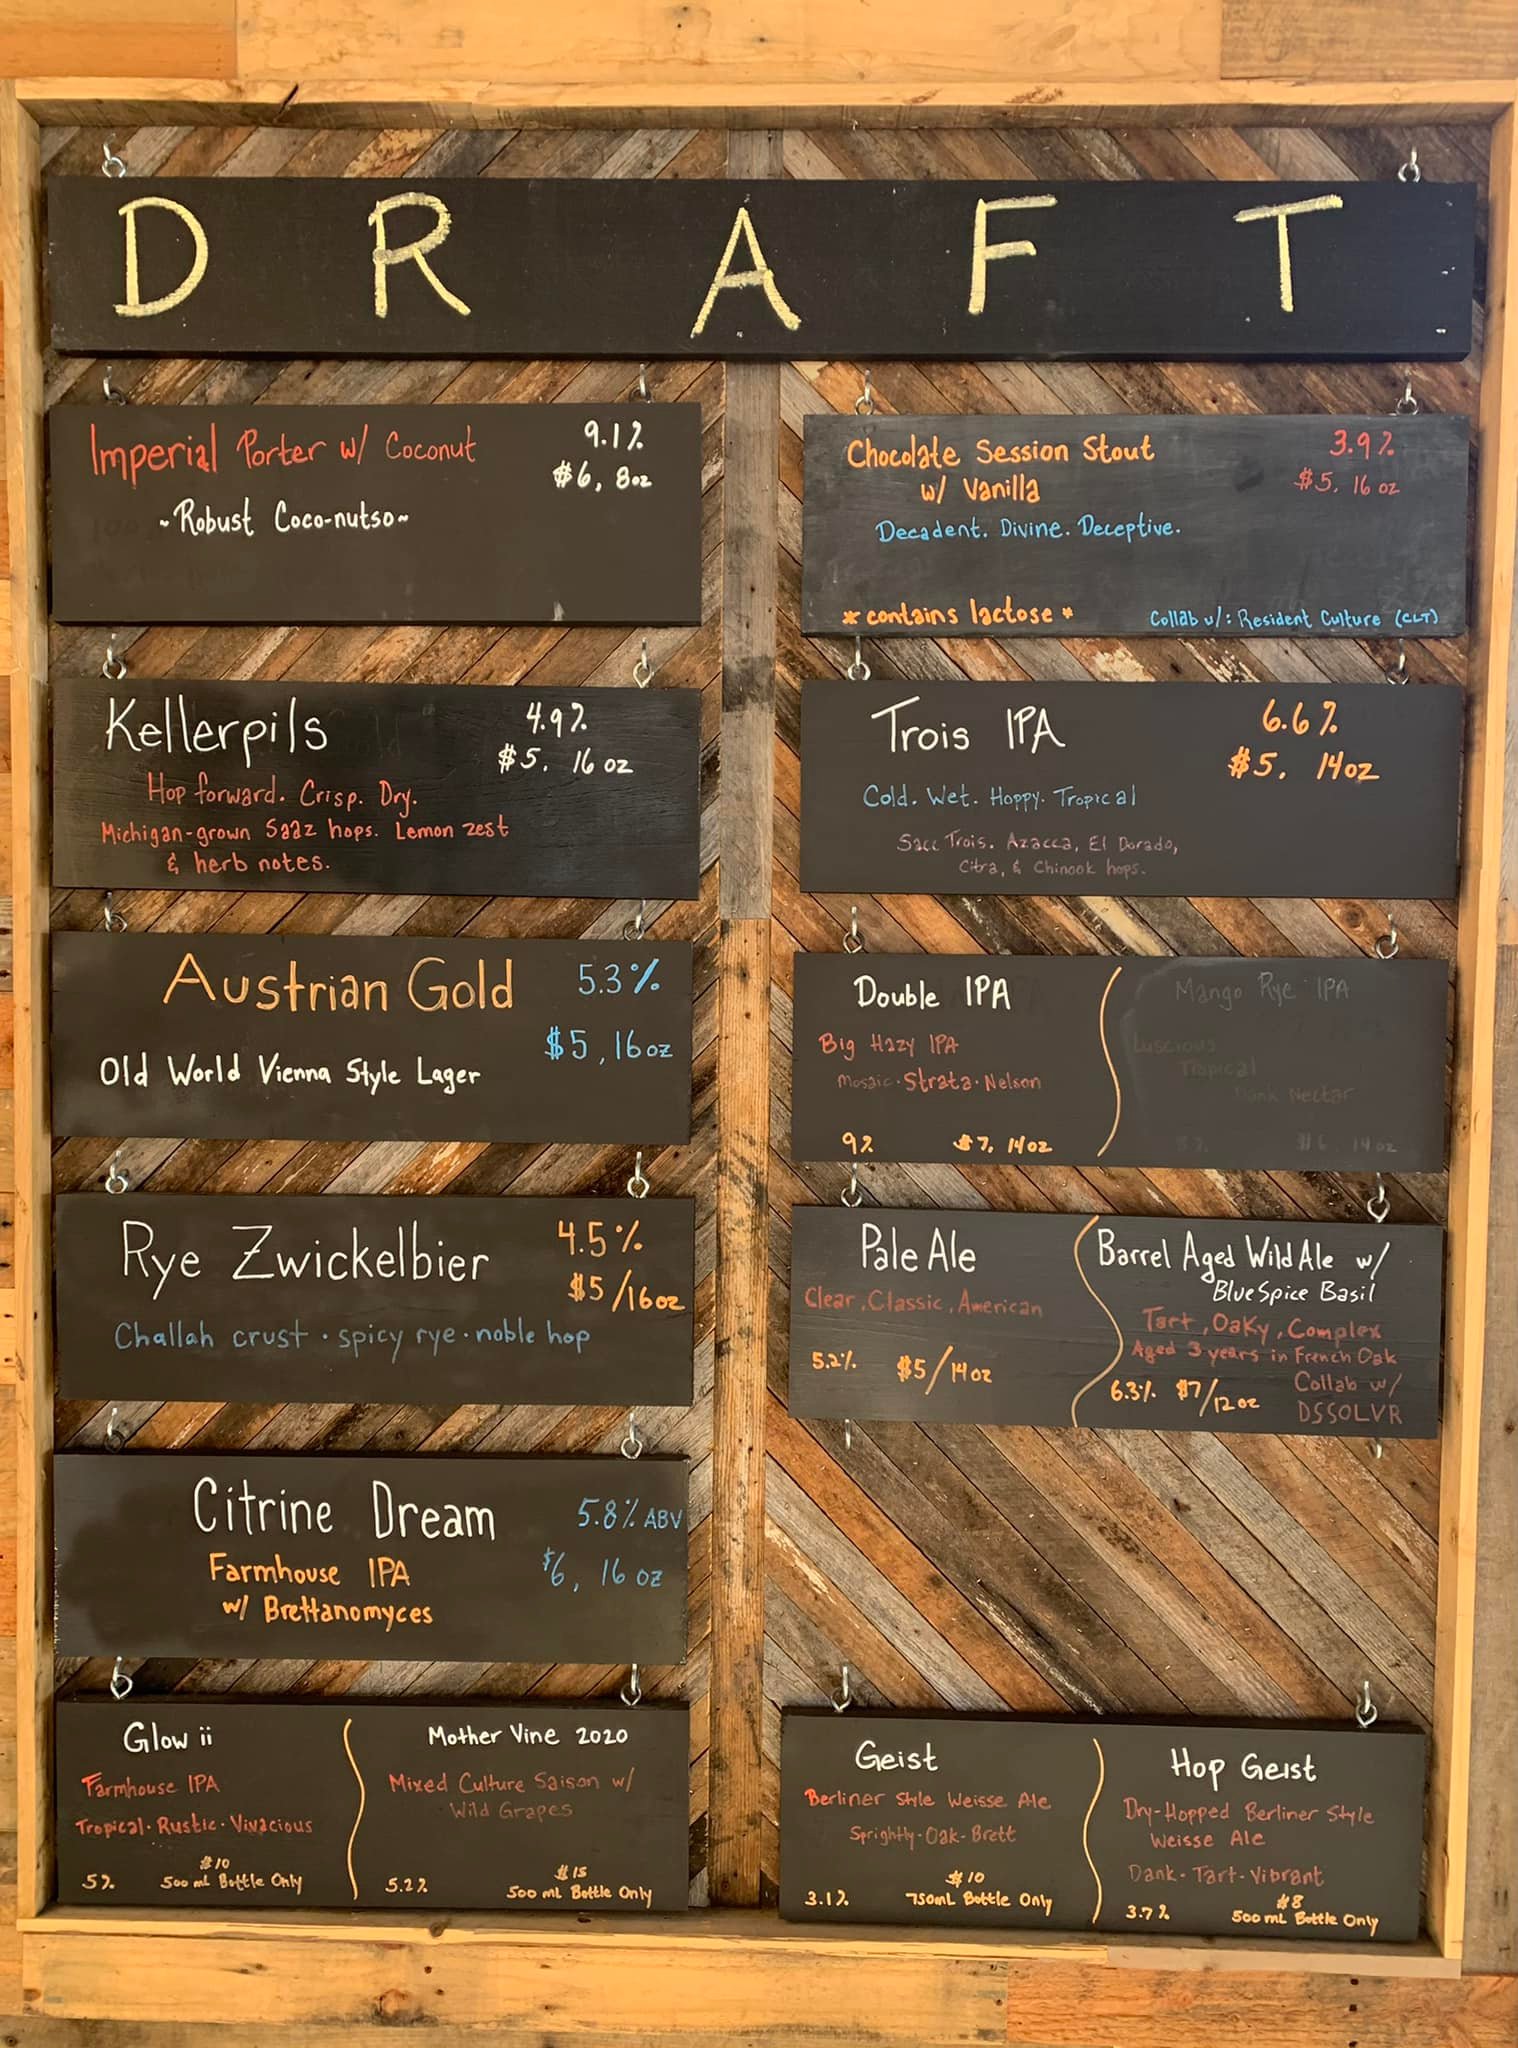 DRAFT
Imperial Porter w/ Coconut
9.1%
$6, 8oz
~Robust Coco-nutso~
Kellerpils
4.9%
$5. 16 oz
Hop forward. Crisp. Dry.
Michigan-grown Saaz hops. Lemon zest
& herb notes.
Austrian Gold
5.3%
$5, 16oz
Old World Vienna Style Lager
Rye Zwickelbier
4.5%
$5/16oz
Challah crust · spicy rye · noble hop
Citrine Dream
5.8% ABV
$6, 16 oz
Farmhouse IPA
w/ Brettanomyces
Glow ii
Farmhouse IPA
Tropical · Rustic · Vivacious
$10
5% 500 mL Bottle Only
Mother Vine 2020
Mixed Culture Saison w/
Wild Grapes
$15
5.2% 500 mL Bottle Only
Chocolate Session Stout
w/ Vanilla
3.9%
$5. 16 oz
Decadent. Divine. Deceptive.
* contains lactose *
Collab w/: Resident Culture (CLT)
Trois IPA
6.6%
$5. 14oz
Cold. Wet. Hoppy. Tropical
Sacc Trois. Azacca, El Dorado,
Citra, & Chinook hops.
Double IPA
Big Hazy IPA
Mosaic · Strata · Nelson
9% $7. 14oz
Mango Rye IPA
Luscious
Tropical
Dank Nectar
$6 14oz
Pale Ale
Clear, Classic, American
5.2% $5/14oz
Barrel Aged Wild Ale w/
Blue Spice Basil
Tart, Oaky, Complex
Aged 3 years in French Oak
6.3% $7/12oz
Collab w/
DSSOLVR
Geist
Berliner Style Weisse Ale
Sprightly - Oak - Brett
$10
3.1% 750mL Bottle Only
Hop Geist
Dry-Hopped Berliner Style
Weisse Ale
Dank - Tart - Vibrant
$8
3.7% 500 mL Bottle Only